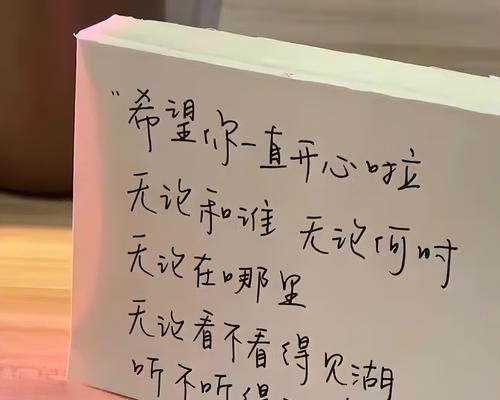 "希望你一直开心啦
无论和谁 无论何时
无论在哪里
无论看不看得见湖
听不听得